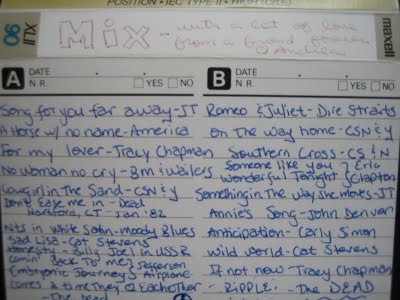 POSITION • IEC TYPE II • HIGH (CrO2)
maxell
XLII 90
Mix - with a lot of love
from a friend
A
DATE
N R
YES NO
Song for you far away-JT
A Horse w/ no name-America
For my lover-Tracy Chapman
No woman no cry-Bm & wailers
Cowgirl in the Sand-CSN&Y
Don't Ease me in-Dead
Hartford, CT - Jan. '82
Nts in White Satin-moody Blues
Sad Lisa-Cat Stevens
Honesty-Billy Joel in USSR
Comin' Back To me } Jefferson
Embryonic Journey } Airplane
Comes a time They & Each other
- The Dead
B
DATE
N R
YES NO
Romeo & Juliet-Dire Straits
On The Way home-CSN&Y
Southern Cross-CS&N
Someone like you } Eric
Wonderful Tonight } Clapton
Something in The way she moves-JT
Annie's Song-John Denver
Anticipation-Carly Simon
Wild World-Cat Stevens
If not now Tracy Chapman
- RIPPLE. - The DEAD